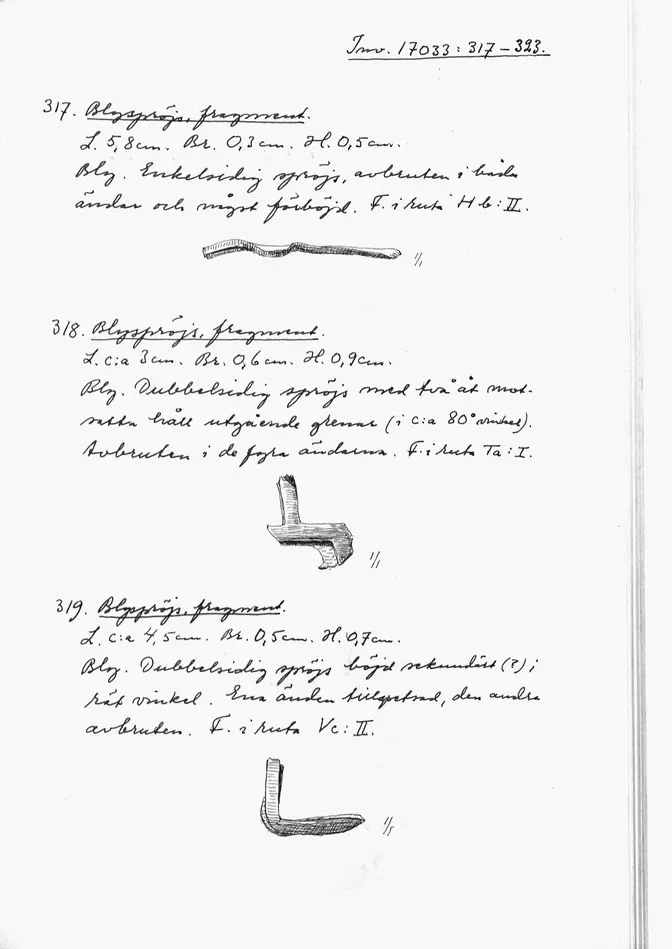 Inv. 17033:317-323.
317. Blyspröjs, fragment.
L. 5,8cm. Br. 0,3cm. H. 0,5cm.
Bly. Enkelsidig spröjs, avbruten i båda
ändar och något förböjd. F. i ruta Hb:II.
1/1
318. Blyspröjs, fragment.
L. c:a 3cm. Br. 0,6cm. H. 0,9cm.
Bly. Dubbelsidig spröjs med två åt mot-
satta håll utgående grenar (i c:a 80° vinkel).
Avbruten i de fyra ändarna. F. i ruta Ta:I.
1/1
319. Blyspröjs, fragment.
L. c:a 4,5cm. Br. 0,5cm. H. 0,7cm.
Bly. Dubbelsidig spröjs böjd sekundärt (?) i
rät vinkel. Ena änden tillspetsad, den andra
avbruten. F. i ruta Vc:II.